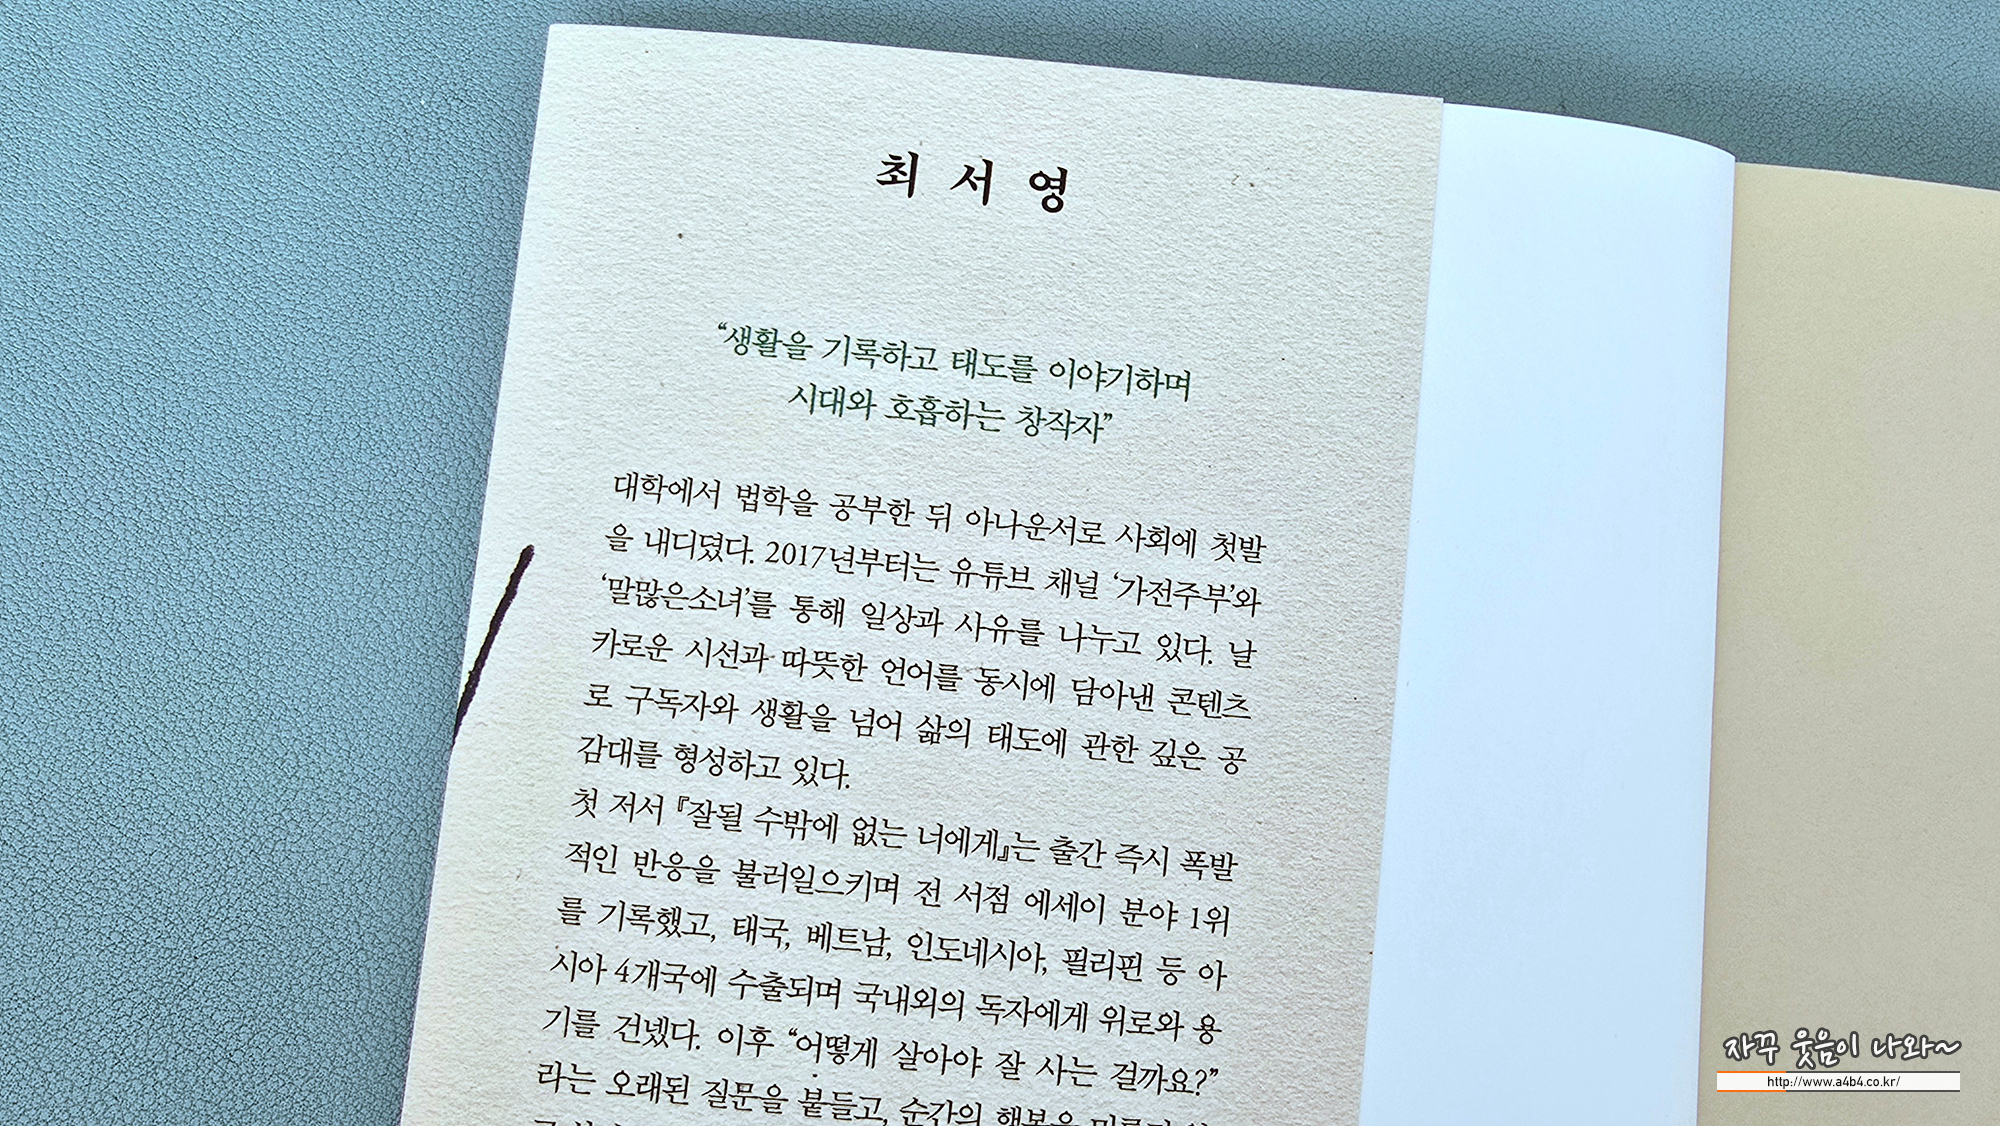 최 서 영
“생활을 기록하고 태도를 이야기하며
시대와 호흡하는 창작자”
대학에서 법학을 공부한 뒤 아나운서로 사회에 첫발
을 내디뎠다. 2017년부터는 유튜브 채널 ‘가전주부’와
‘말많은소녀’를 통해 일상과 사유를 나누고 있다. 날
카로운 시선과 따뜻한 언어를 동시에 담아낸 콘텐츠
로 구독자와 생활을 넘어 삶의 태도에 관한 깊은 공
감대를 형성하고 있다.
첫 저서 『잘될 수밖에 없는 너에게』는 출간 즉시 폭발
적인 반응을 불러일으키며 전 서점 에세이 분야 1위
를 기록했고, 태국, 베트남, 인도네시아, 필리핀 등 아
시아 4개국에 수출되며 국내외의 독자에게 위로와 용
기를 건넸다. 이후 “어떻게 살아야 잘 사는 걸까요?”
라는 오래된 질문을 붙들고, 순간의 행복을
자꾸 웃음이 나와~
http://www.a4b4.co.kr/